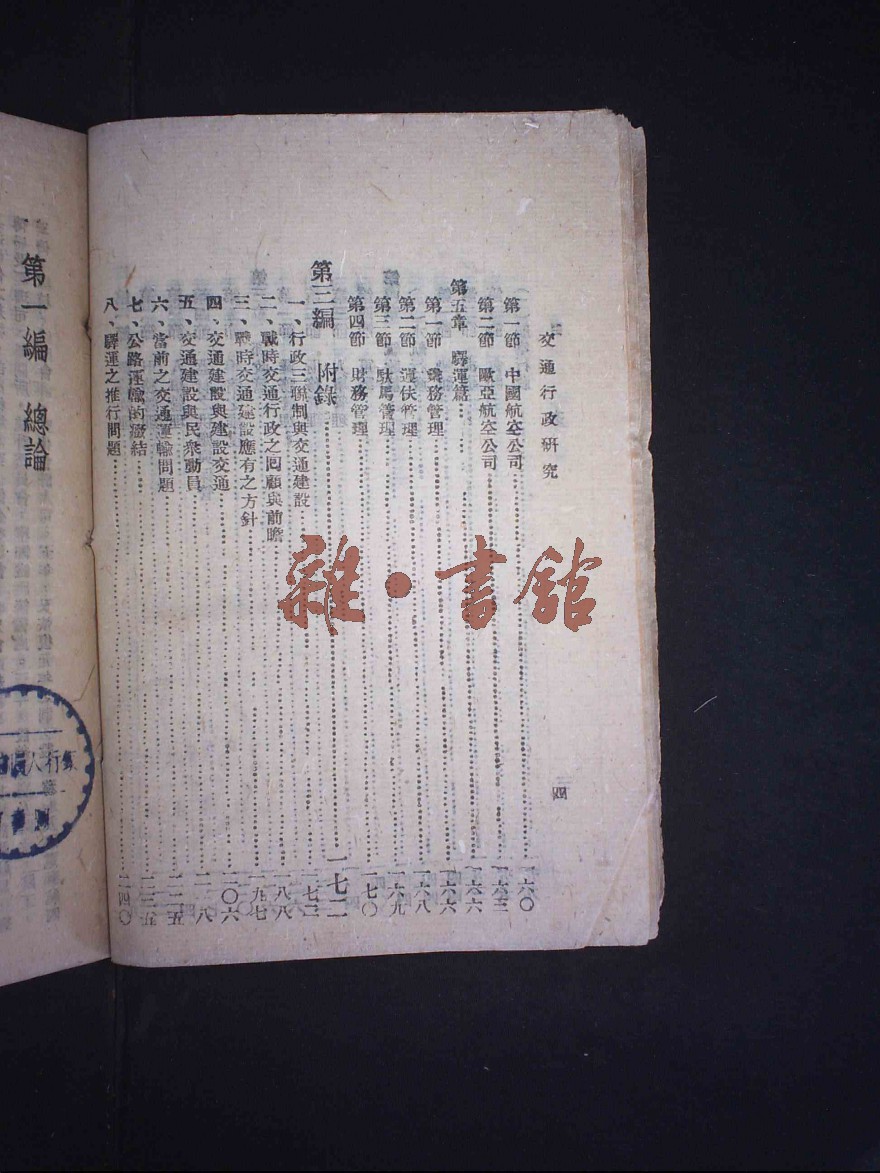 交通行政研究
四
第一節 中國航空公司……一六〇
第二節 歐亞航空公司……一六三
第五章 驛運篇……一六六
第一節 業務管理……一六六
第二節 運伕管理……一六八
第三節 馱馬管理……一六九
第四節 財務管理……一七〇
第三編 附錄……一七二
一、行政三聯制與交通建設……一七三
二、戰時交通行政之囘顧與前瞻……一八八
三、戰時交通建設應有之方針……一九七
四、交通建設與建設交通……二〇六
五、交通建設與民衆動員……二一八
六、當前之交通運輸問題……二二五
七、公路運輸的癥結……二三五
八、驛運之推行問題……二四〇
第一編 總論
雜·書館